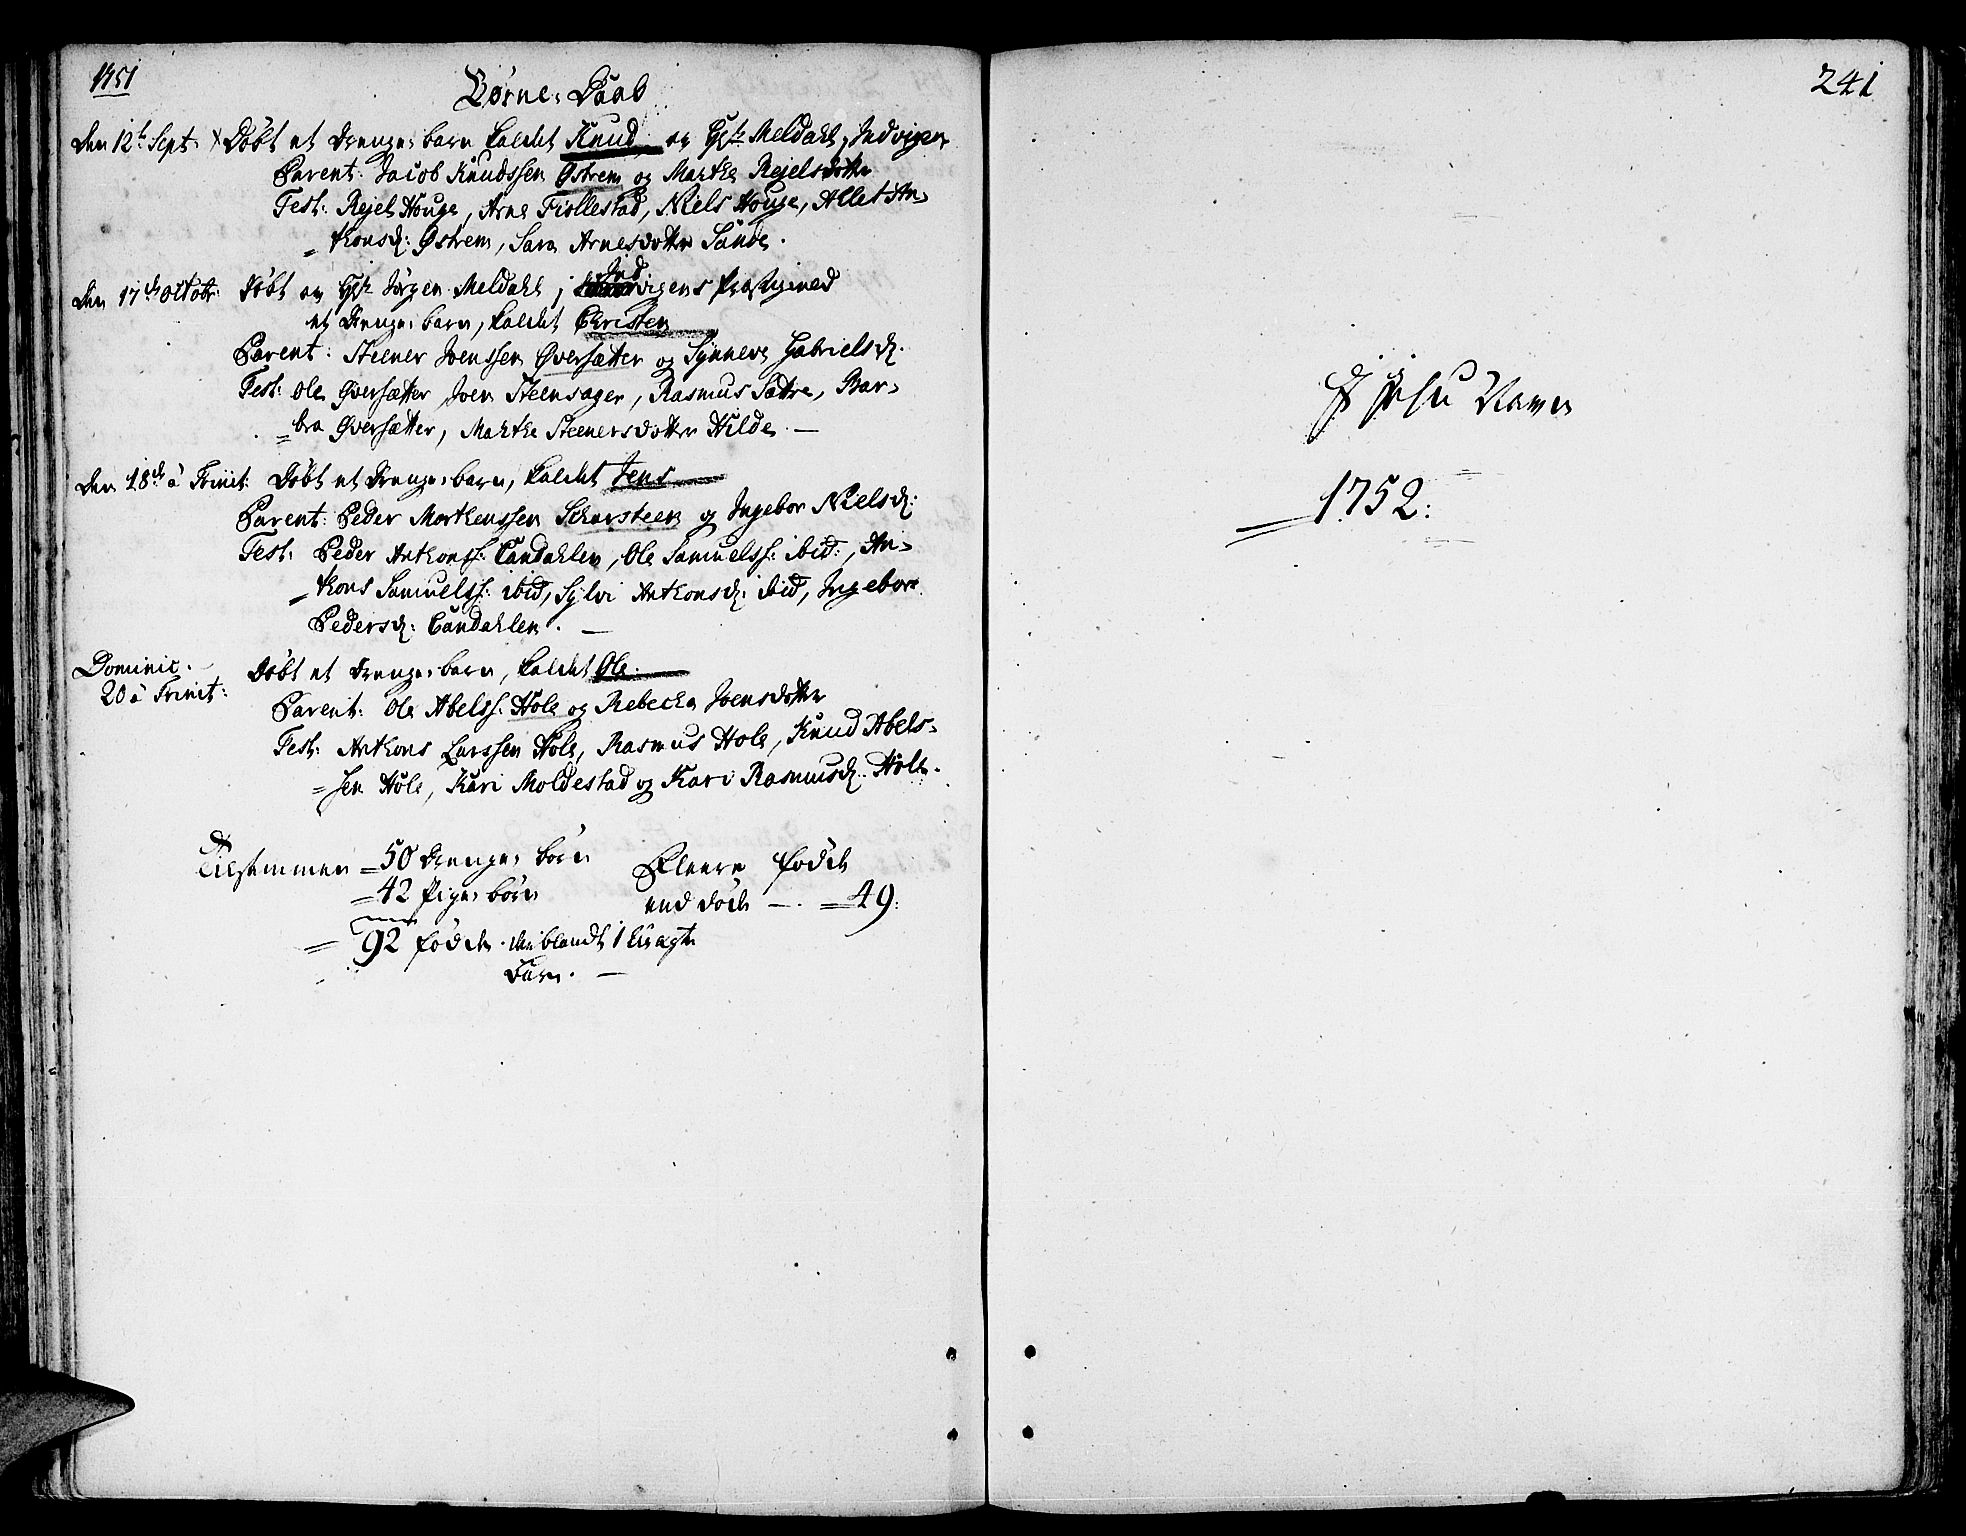 1751
Børne-Daab
Den 12te Sept: Døbt et Drenge-barn kaldet Knud, av Hr Meldahl, Indvigen
Parent: Jacob Knudssen Østrem og Marthe Rejelsdotter
Test: Rejel Houge, Arne Fiollestad, Niels Houge, Allet An-
=thonsd: Østrem, Sara Arnesdotter Sande.
Den 17de Octobr: Døbt av Hr Jørgen Meldahl, i Indvigens Præstegield
et Drenge-barn, kaldet Christen
Parent: Steener Joenssen Øversætter og Synneve Gabrielsd.
Test: Ole Øversætter, Joen Steensager, Rasmus Sætre, Bar-
=bra Øversætter, Marthe Steenersdotter Hilde. —
Den 18de à Trinit: Døbt et Drenge-barn, kaldet Jens
Parent: Peder Marthenssen Scharsteen og Ingebor Nielsd:
Test: Peder Anthonss: Candahlen, Ole Samuelss: ibid:, An-
=thons Samuelss: ibid, Sylvi Anthonsd: ibid, Ingebor
Pedersd: Candahlen. —
Dominic.
20 à Trinit: Døbt et Drenge-barn, kaldet Ole.
Parent: Ole Abelss. Hole og Rebecka Joensdotter
Test: Anthons Larssen Hole, Rasmus Hole, Knud Abels-
=sen Hole, Kari Moldestad og Kari Rasmusd. Hole.
Tilsammen =50 Drenge-børn
=42 Pige-børn
= 92 fødde. der iblandt 1 Uægte
Barn. —
Fleere fødde
end døde —. =49.
241
I Jesu Navn
1752: